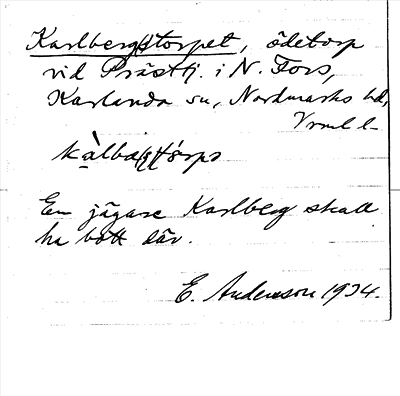 Karlberg(s)torpet, ödetorp
vid Prästtj. i N. Fors,
Karlanda sn, Nordmarks hd,
Vrml l.
En jägare Karlberg skall
ha bott där.
E. Andersson 1934.